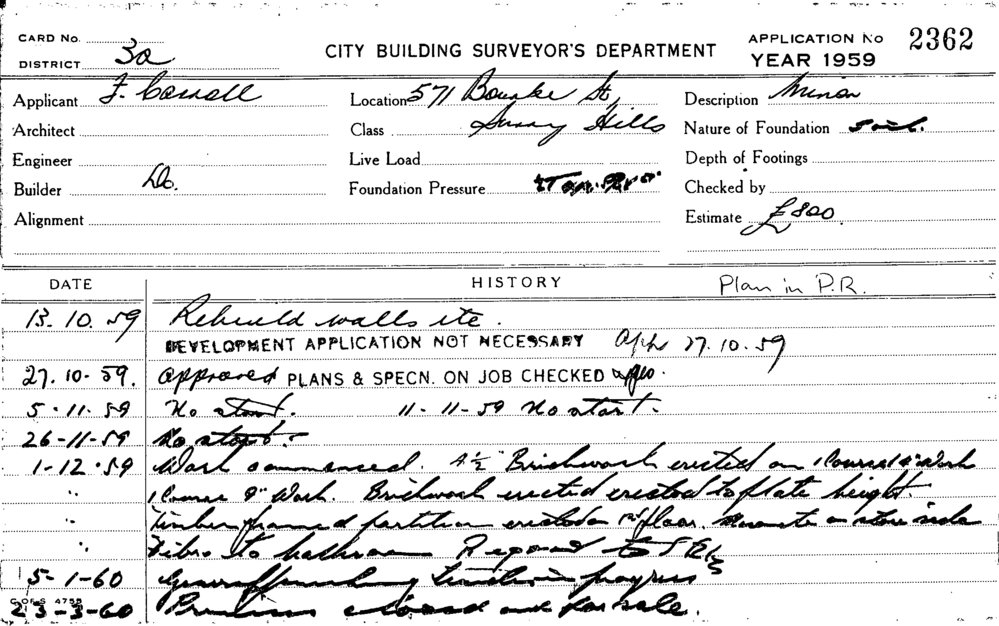 CARD No.
DISTRICT 3a
CITY BUILDING SURVEYOR'S DEPARTMENT
APPLICATION No 2362
YEAR 1959
Applicant F.
Location 571 Bourke St,
Description Minor
Architect
Class Surry Hills
Nature of Foundation
Engineer
Live Load
Depth of Footings
Builder Do.
Foundation Pressure
Checked by
Alignment
Estimate £800
DATE HISTORY Plan in P.R.
13.10.59 Rebuild walls etc.
DEVELOPMENT APPLICATION NOT NECESSARY 27.10.59
27.10-59. approved PLANS & SPECN. ON JOB CHECKED
5.11.59 No start. 11-11-59 No start.
26-11-59 No start.
1-12.59 Work commenced. 4½" Brickwork erected on 1 Course Work
" 1 Course 9" Work. Brickwork erected to plate height.
" Timber framed partition erected on 1st floor. on side
" Fibro to bathroom
5-1-60 General finishing in progress
C OF S 4755
23-3-60 Premises closed and for sale.